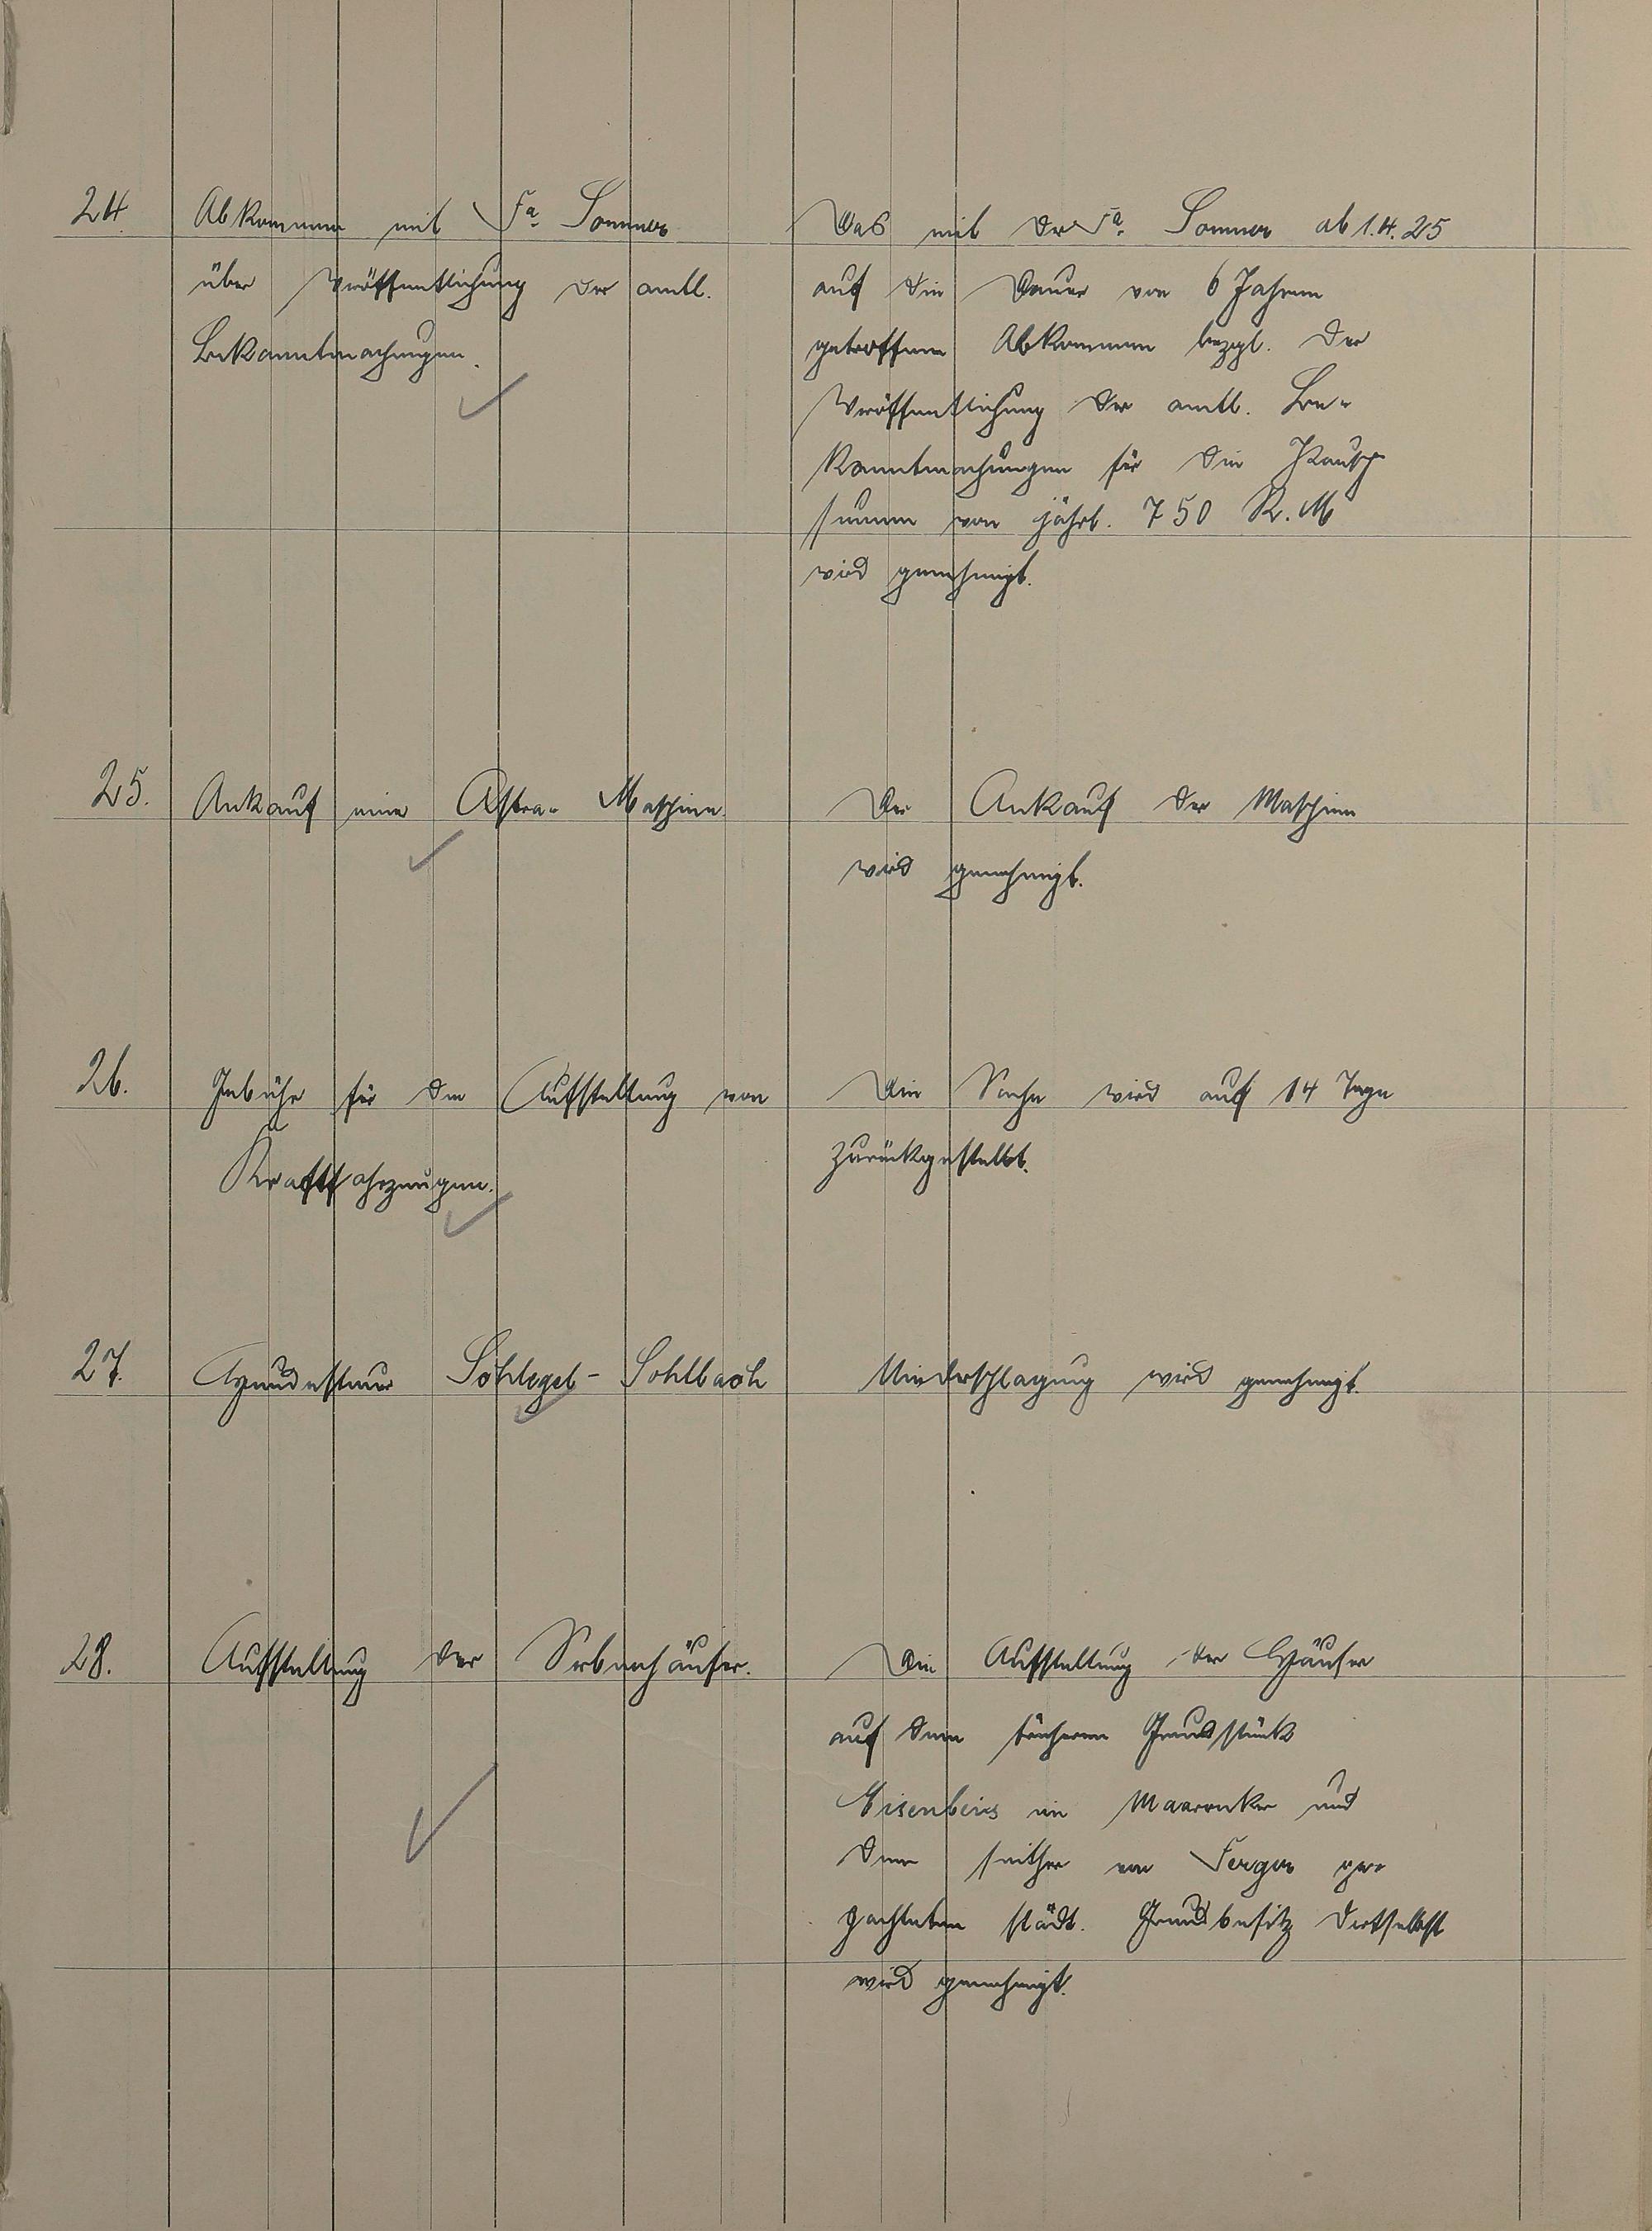 24.
Abkommen mit Fa. Sommer
über Veröffentlichung der amtl.
Bekanntmachungen.
Das mit der Fa. Sommer ab 1.4.25
auf die Dauer von 6 Jahren
getroffene Abkommen bezgl. der
Veröffentlichung der amtl. Be-
kanntmachungen für die Pausch
summe von jährl. 750 R.M
wird genehmigt.
25.
Ankauf einer Astra- Maschine.
Der Ankauf der Maschine
wird genehmigt.
26.
Gebühr für die Aufstellung von
Kraftfahrzeugen.
Die Sache wird auf 14 Tage
zurückgestellt.
27.
Hundesteuer Schlegel - Sohlbach
Niederschlagung wird genehmigt.
28.
Aufstellung der
Die Aufstellung der Häuser
auf dem früheren Grundstück
Eisenbeis im und
dem seither von Ferger ge-
pachteten städt. Grundbesitz dortselbst
wird genehmigt.